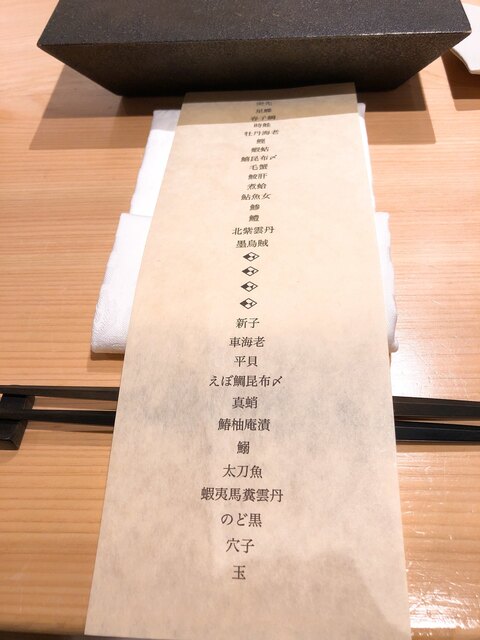 星鰈
春子鯛
時鮭
牡丹海老
鰹
蝦蛄
鱚昆布〆
毛蟹
鮟肝
煮蛤
鮎魚女
鰺
鱧
北紫雲丹
墨烏賊
新子
車海老
平貝
えぼ鯛昆布〆
真蛸
鰆柚庵漬
鰯
太刀魚
蝦夷馬糞雲丹
のど黒
穴子
玉